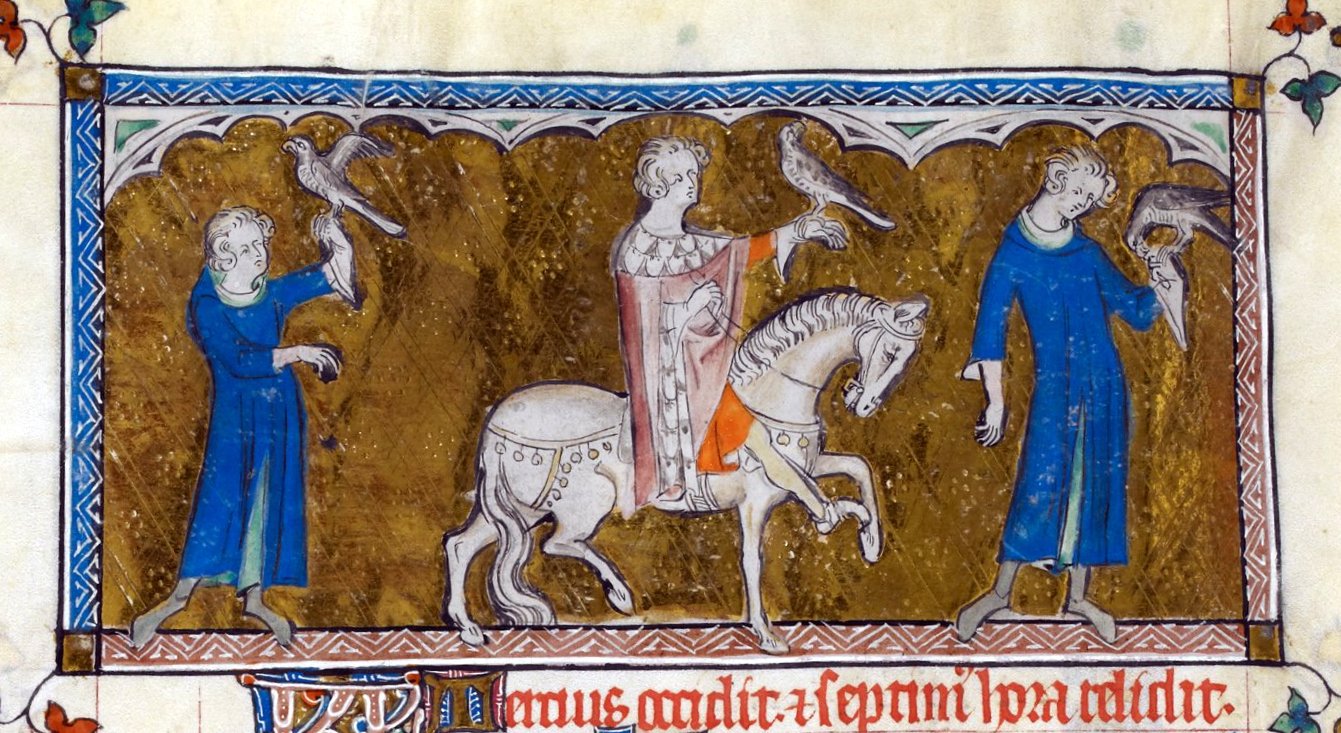 Tertius occidit. ⁊ septimꝰ hora relidit.